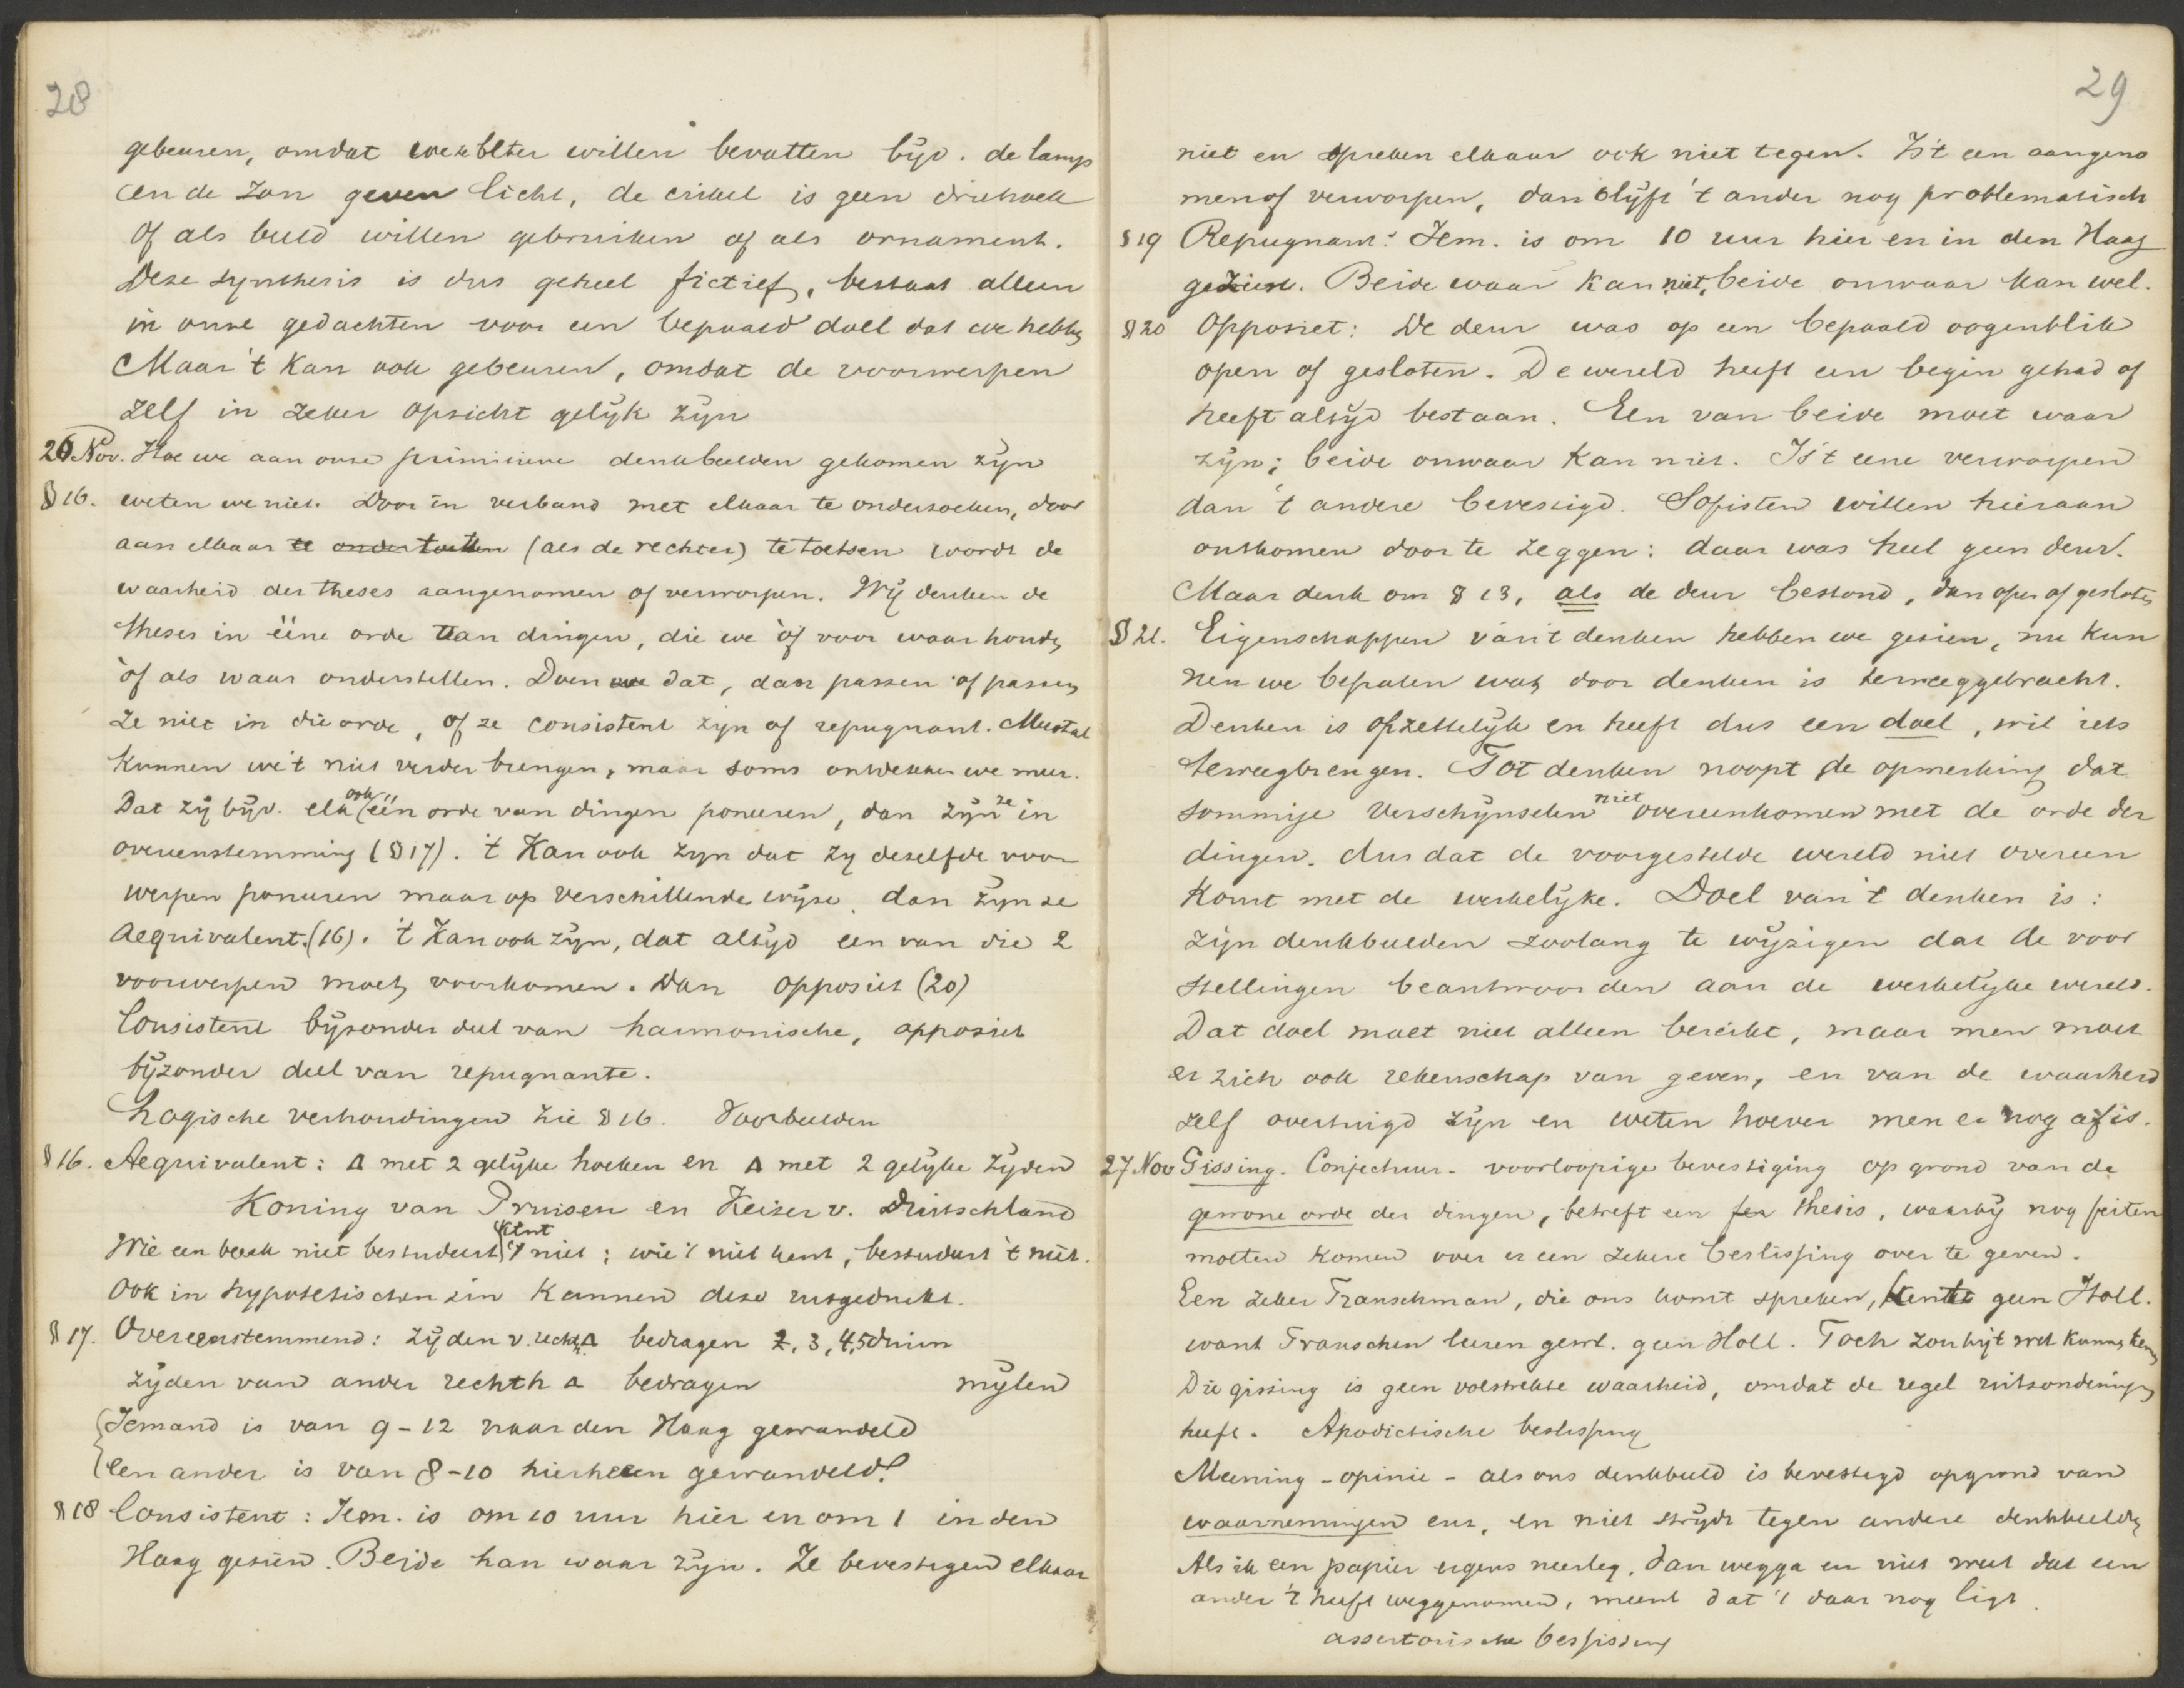 28
gebeuren, omdat we ze beter willen bevatten bijv. de lamp
en de zon geven licht, de cirkel is geen driehoek
Of als beeld willen gebruiken of als ornament.
Deze synthesis is dus geheel fictief, bestaat alleen
in onze gedachten voor een bepaald doel dat we hebben
Maar 't kan ook gebeuren, omdat de voorwerpen
zelf in zeker opzicht gelijk zijn
26 Nov. Hoe we aan onze primitieve denkbeelden gekomen zijn
§ 16. weten we niet. Door in verband met elkaar te onderzoeken, door
aan elkaar te (als de rechter) te toetsen wordt de
waarheid der theses aangenomen of verworpen. Wij denken de
theses in ééne orde van dingen, die we òf voor waar houden
òf als waar onderstellen. Doen we dat, dan passen of passen
ze niet in die orde, of ze consistent zijn of repugnant. Meestal
kunnen we 't niet verder brengen, maar soms ontdekken we meer.
Dat zij bijv. elk ook één orde van dingen poneeren, dan zijn ze in
overeenstemming (§ 17). 't Kan ook zijn dat zij dezelfde voor
werpen poneeren maar op verschillende wijze, dan zijn ze
Aequivalent. (16). 't Kan ook zijn, dat altijd een van die 2
voorwerpen moet voorkomen. Dan opposiet (20)
Consistent bijzonder deel van harmonische, opposiet
bijzonder deel van repugnante.
Logische verhoudingen zie § 16. Voorbeelden
§ 16. Aequivalent: Δ met 2 gelijke hoeken en Δ met 2 gelijke zijden
Koning van Pruisen en Keizer v. Duitschland
Wie een boek niet bestudeert kent 't niet; wie 't niet kent, bestudeert 't niet.
Ook in hypothetischen zin kunnen deze uitgedrukt.
§ 17. Overeenstemmend: zijden v. rechth. Δ bedragen 2, 3, 4, 5 duim
zijden van ander rechth Δ bedragen mijlen
Iemand is van 9-12 naar den Haag gewandeld
Een ander is van 8-10 hierheen gewandeld
§ 18 Consistent: Iem. is om 10 uur hier en om 1 in den
Haag gezien. Beide kan waar zijn. Ze bevestigen elkaar
29
niet en spreken elkaar ook niet tegen. Is 't een aangeno
men of verworpen, dan blijft 't ander nog problematisch
§ 19 Repugnant: Iem. is om 10 uur hier en in den Haag
gezien. Beide waar kan niet, beide onwaar kan wel.
§ 20 Opposiet: De deur was op een bepaald oogenblik
open of gesloten. De wereld heeft een begin gehad of
heeft altijd bestaan. Een van beide moet waar
zijn; beide onwaar kan niet. Is 't eene verworpen
dan 't andere bevestigd. Sofisten willen hieraan
ontkomen door te zeggen: daar was heel geen deur.
Maar denk om § 13, als de deur bestond, dan open of gesloten
§ 21. Eigenschappen van 't denken hebben we gezien, nu kun
nen we bepalen wat door denken is teweeggebracht.
Denken is opzettelijk en heeft dus een doel, wil iets
teweegbrengen. Tot denken noopt de opmerking dat
sommige verschijnselen niet overeenkomen met de orde der
dingen. dus dat de voorgestelde wereld niet overeen
komt met de werkelijke. Doel van 't denken is:
zijn denkbeelden zoolang te wijzigen dat de voor
stellingen beantwoorden aan de werkelijke wereld.
Dat doel moet niet alleen bereikt, maar men moet
er zich ook rekenschap van geven, en van de waarheid
zelf overtuigd zijn en weten hoever men er nog af is.
27 Nov Gissing. Conjectuur. voorloopige bevestiging op grond van de
gewone orde der dingen, betreft een thesis, waarbij nog feiten
moeten komen voor er een zekere beslissing over te geven.
Een zeker Franschman, die ons komt spreken, kent geen Holl.
want Franschen leeren gewl. geen Holl. Toch zou hij 't wel kunnen kennen
Die gissing is geen volstrekte waarheid, omdat de regel uitzonderingen
heeft. Apodictische beslissing
Meening - opinie - als ons denkbeeld is bevestigd op grond van
waarnemingen enz, en niet strijdt tegen andere denkbeelden
Als ik een papier ergens neerleg, dan wegga en niet weet dat een
ander 't heeft weggenomen, meent dat 't daar nog ligt.
assertorische beslissing